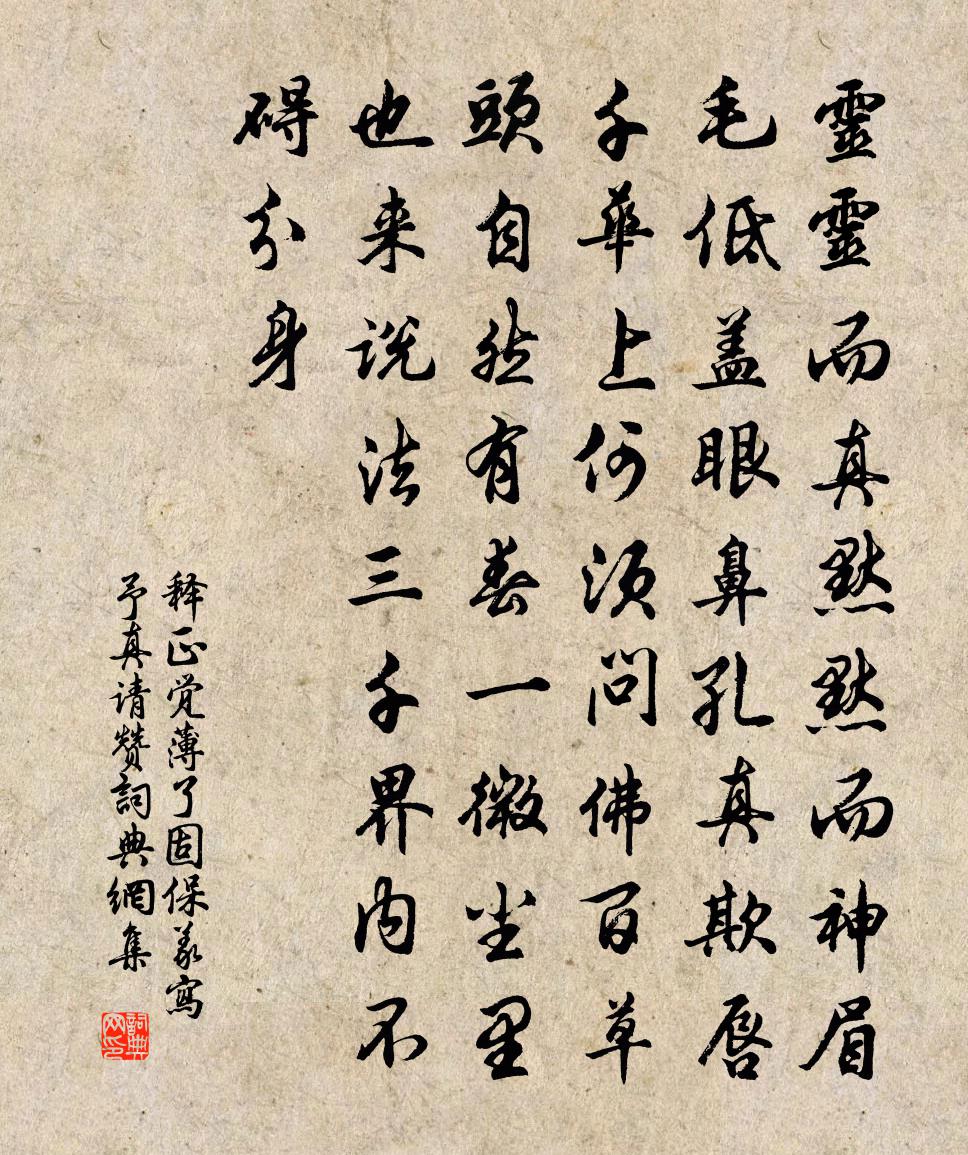 靈靈而真默默而神眉
毛低盖眼鼻孔真欺唇
千華上何須問佛百草
頭自然有春一微尘里
也来说法三千界内不
碍分身
释正觉薄了固保义寫
予真请赞詞典網集
詞典网印